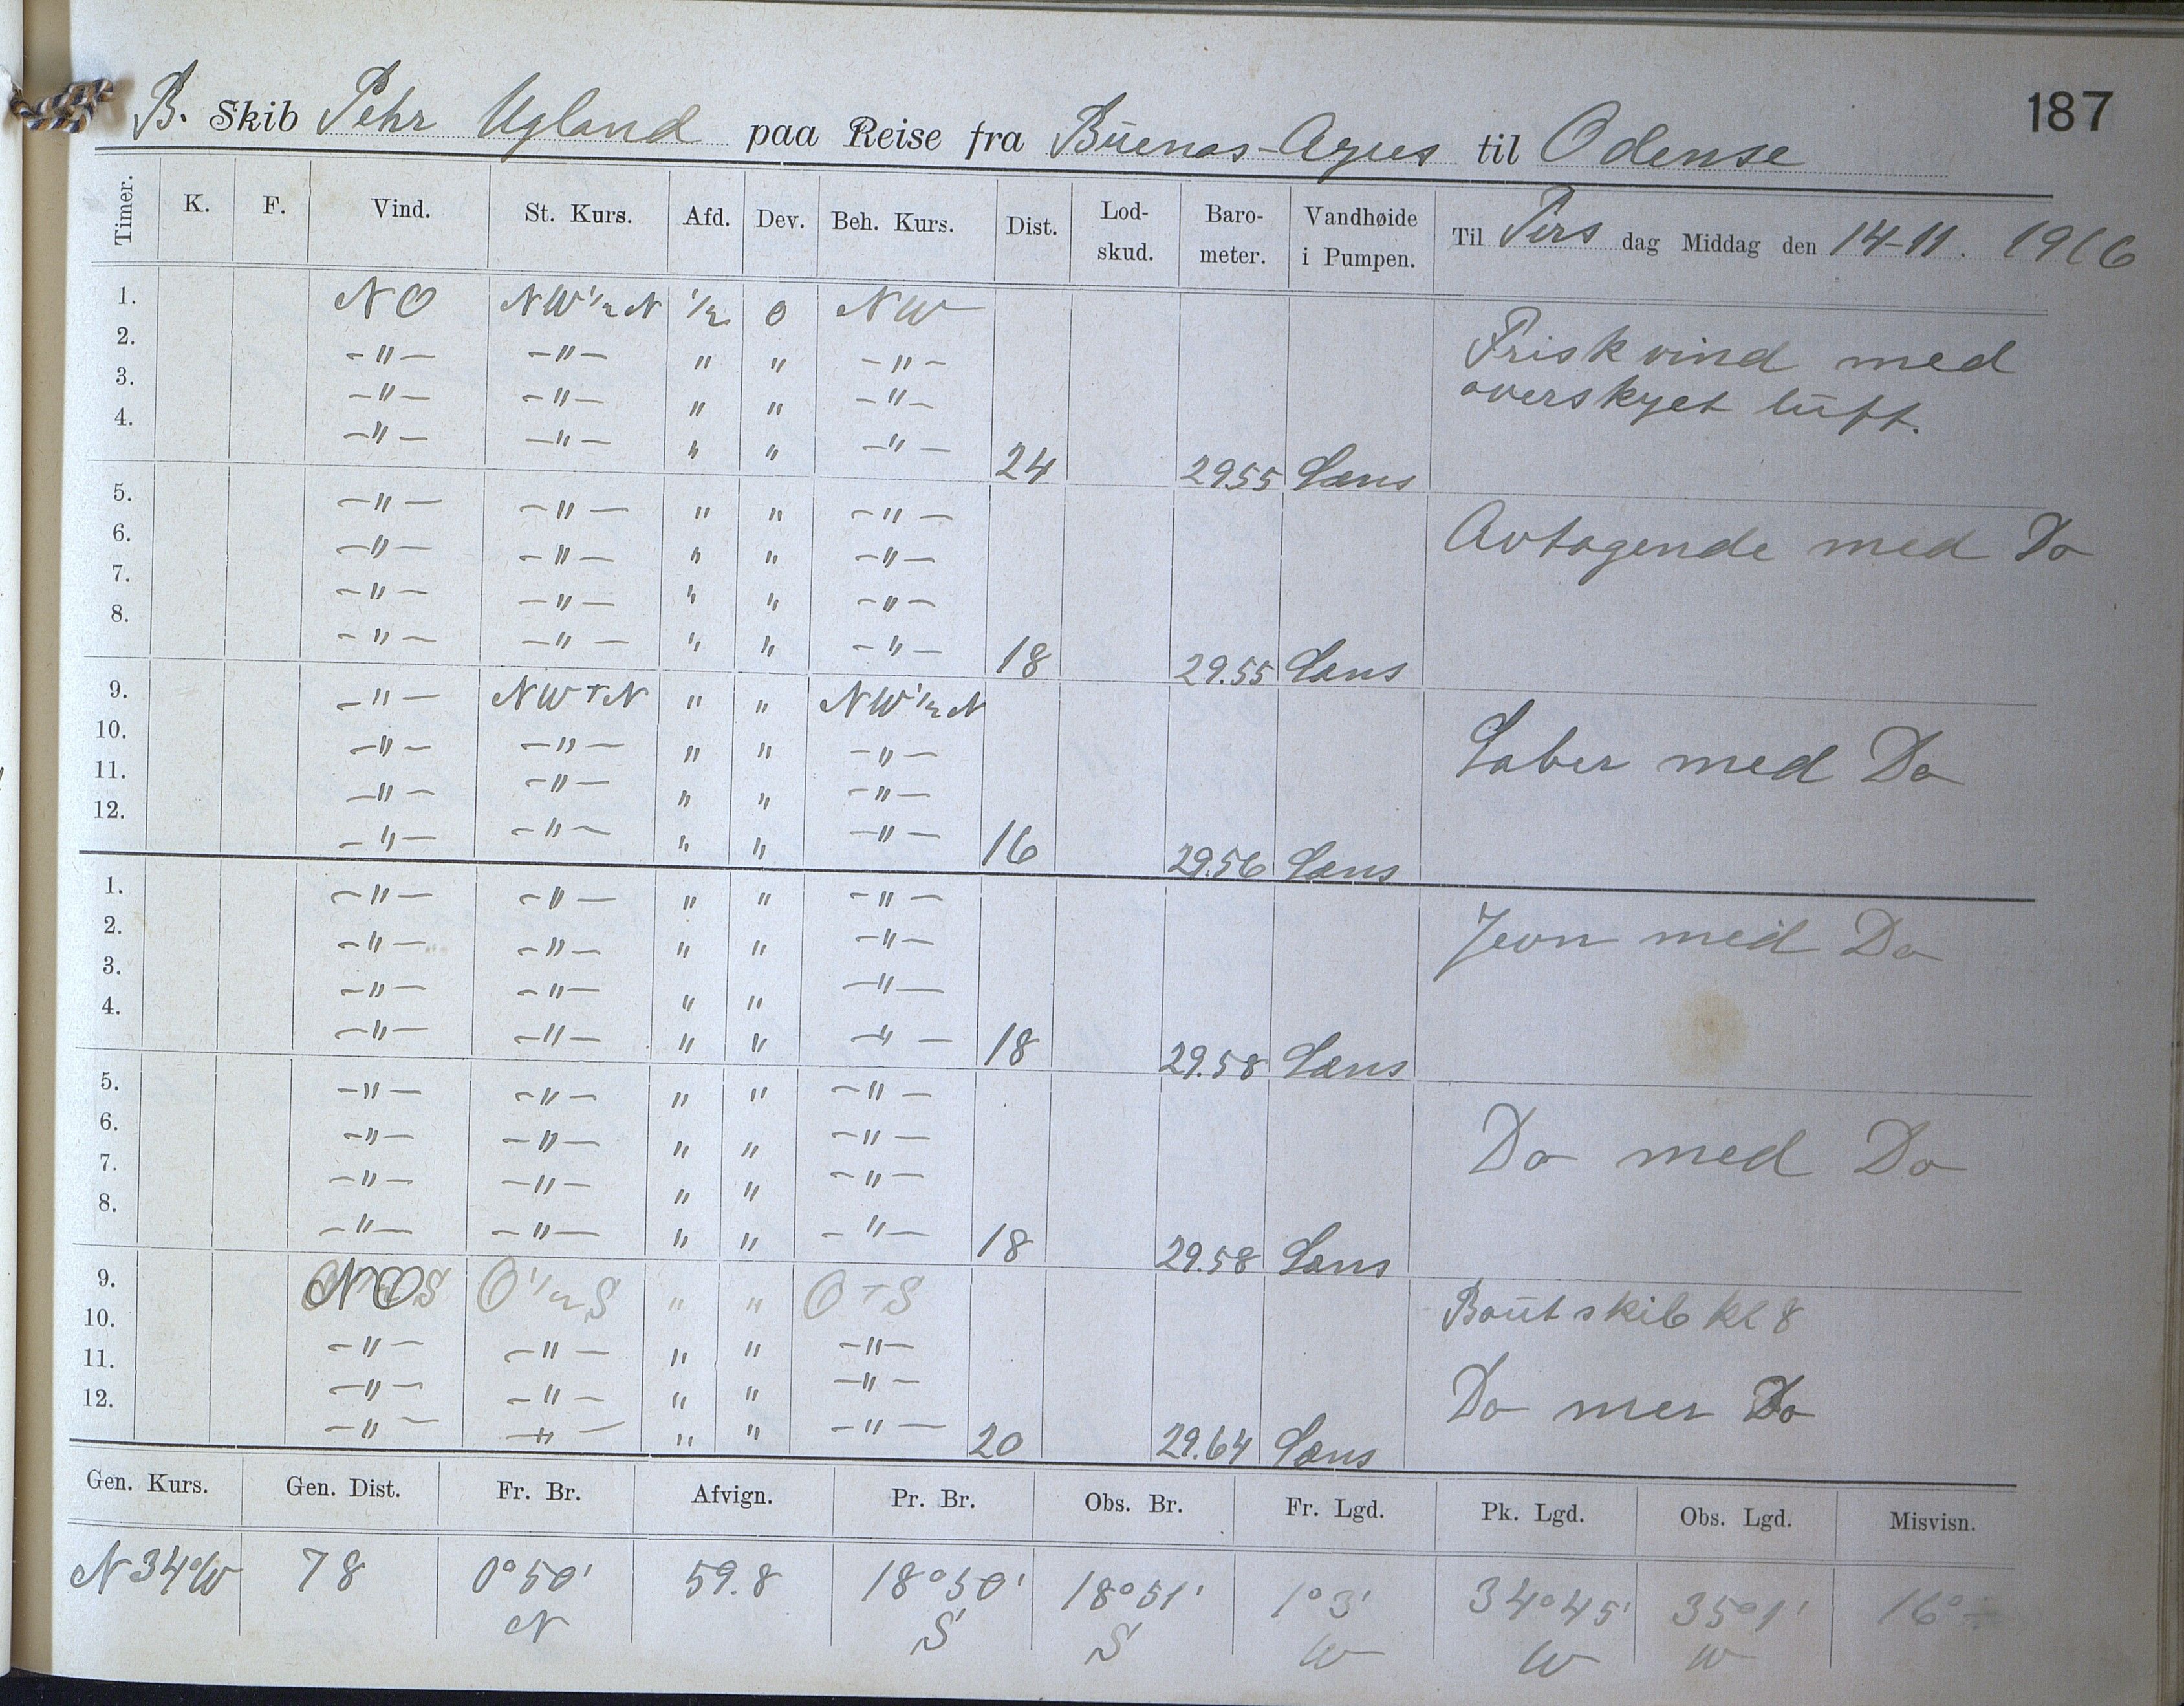 187
B. Skib Pehr Ugland paa Reise fra Buenos-Ayres til Odense
Timer. K. F. Vind. St. Kurs. Afd. Dev. Beh. Kurs. Dist. Lod-skud. Baro-meter. Vandhøide i Pumpen. Til Tirs dag Middag den 14-11. 1916
1. NO NW½N ½ 0 NW
2. -"- -"- " " -"- Frisk vind med
3. -"- -"- " " -"- overskyet luft.
4. -"- -"- " " -"- 24 2955 Læns
5. -"- -"- " " -"- Avtagende med Do
6. -"- -"- " " -"-
7. -"- -"- " " -"-
8. -"- -"- " " -"- 18 29.55 Læns
9. -"- NWTN " " NW½N
10. -"- -"- " " -"- Laber med Do
11. -"- -"- " " -"-
12. -"- -"- " " -"- 16 29.56 Læns
1. -"- -"- " " -"- Jevn med Do
2. -"- -"- " " -"-
3. -"- -"- " " -"-
4. -"- -"- " " -"- 18 29.58 Læns
5. -"- -"- " " -"-
6. -"- -"- " " -"- Do med Do
7. -"- -"- " " -"-
8. -"- -"- " " -"- 18 29.58 Læns
9. NO O½S " " OTS Bautskib kl 8
10. -"- -"- " " -"-
11. -"- -"- " " -"- Do mer Do
12. -"- -"- " " -"- 20 29.64 Læns
Gen. Kurs. Gen. Dist. Fr. Br. Afvign. Pr. Br. Obs. Br. Fr. Lgd. Pk. Lgd. Obs. Lgd. Misvisn.
N34°W 78 0°50' 59.8 18°50' 18°51' 1°3' 34°45' 35°1' 16°
N S S W W W